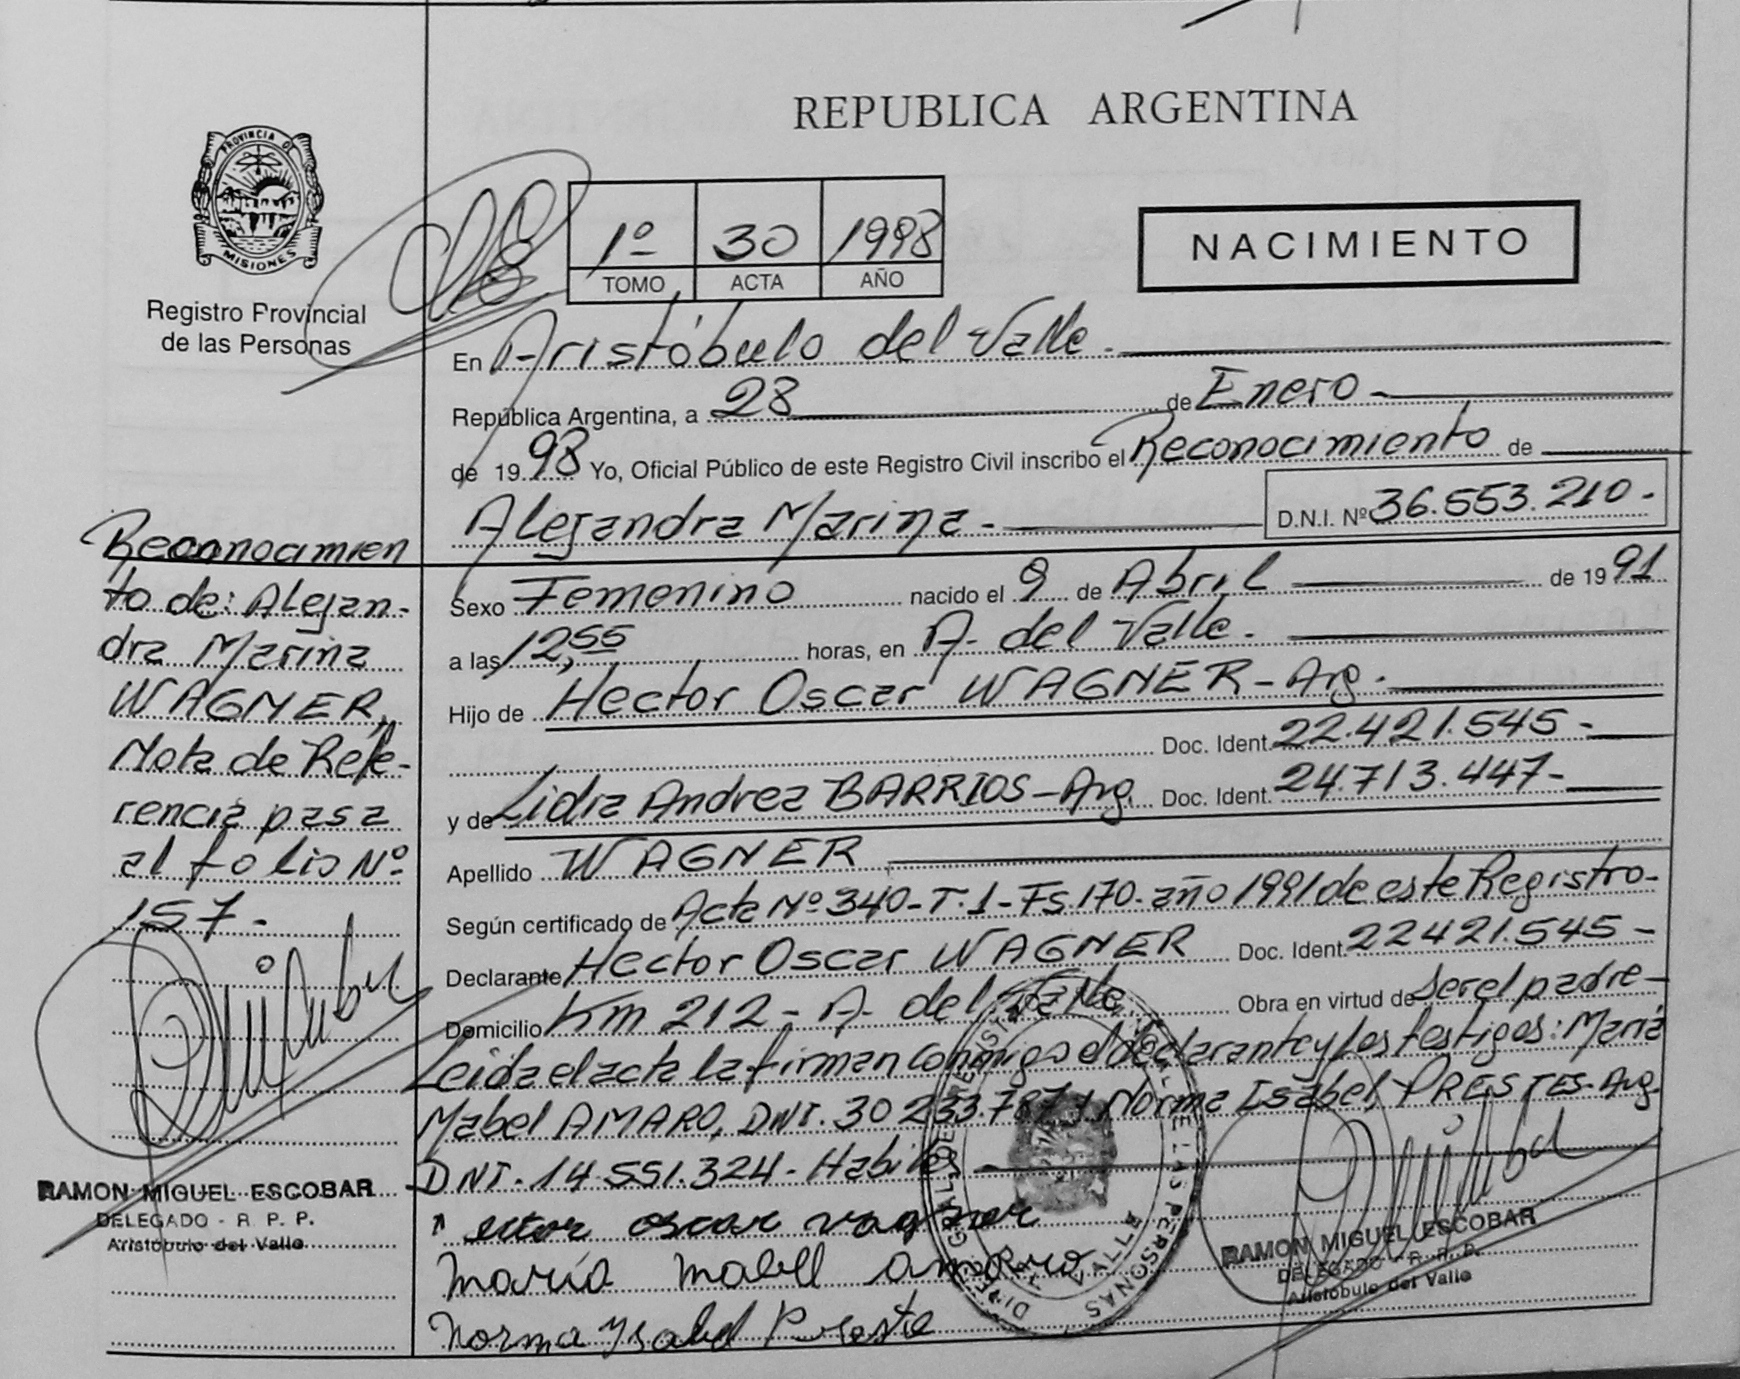 REPUBLICA ARGENTINA
PROVINCIA DE
MISIONES
Registro Provincial
de las Personas
1º 30 1998
TOMO ACTA AÑO
NACIMIENTO
En Aristóbulo del Valle.
República Argentina, a 28 de Enero
de 1998 Yo, Oficial Público de este Registro Civil inscribo el Reconocimiento de
Alejandra Marina - D.N.I. Nº 36.553.210.-
Sexo Femenino nacido el 9 de Abril de 1991
a las 12,55 horas, en A. del Valle.
Hijo de Hector Oscar WAGNER - Arg.
Doc. Ident. 22.421.545-
y de Lidia Andrea BARRIOS - Arg. Doc. Ident. 24.713.447-
Apellido WAGNER
Según certificado de Acta Nº 340-T.1-Fs.170-año 1991 de este Registro-
Declarante Hector Oscar WAGNER Doc. Ident. 22421.545-
Domicilio Km 212 - A. del Valle Obra en virtud de ser el padre-
Leida el acta la firman conmigo el declarante y los testigos: María
Mabel AMARO, DNI. 30 233.787 y Norma Isabel PRESTES-Arg.
DNI. 14.551.324 - Habiles
ector oscar vagner
María Mabell Amaro
Norma Ysabel
RAMON MIGUEL ESCOBAR
DELEGADO - R. P. P.
Aristóbulo del Valle
Reconocimien
to de: Alejan-
dra Marina
WAGNER,
Nota de Refe-
rencia pasa
al folio Nº
157-
RAMON MIGUEL ESCOBAR
DELEGADO - R. P. P.
Aristóbulo del Valle